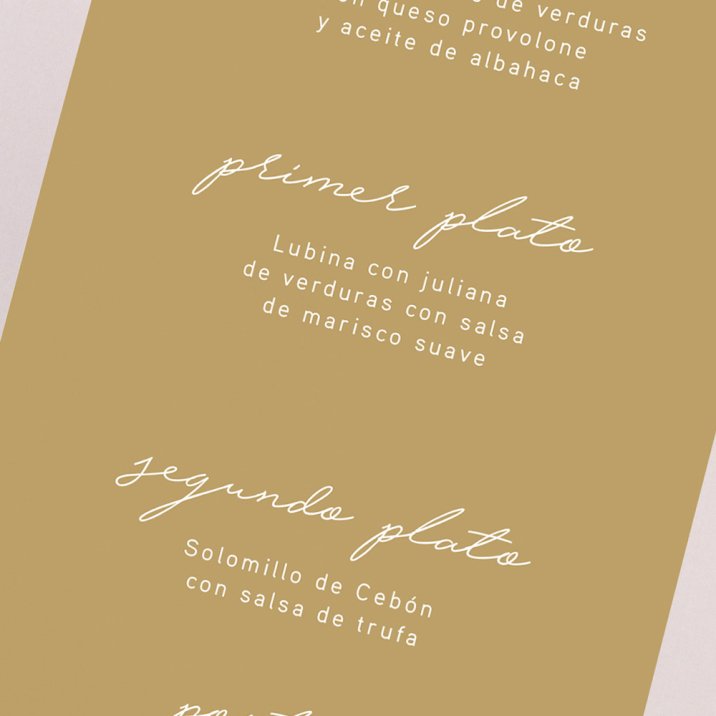 de verduras
queso provolone
y aceite de albahaca
primer plato
Lubina con juliana
de verduras con salsa
de marisco suave
segundo plato
Solomillo de Cebón
con salsa de trufa